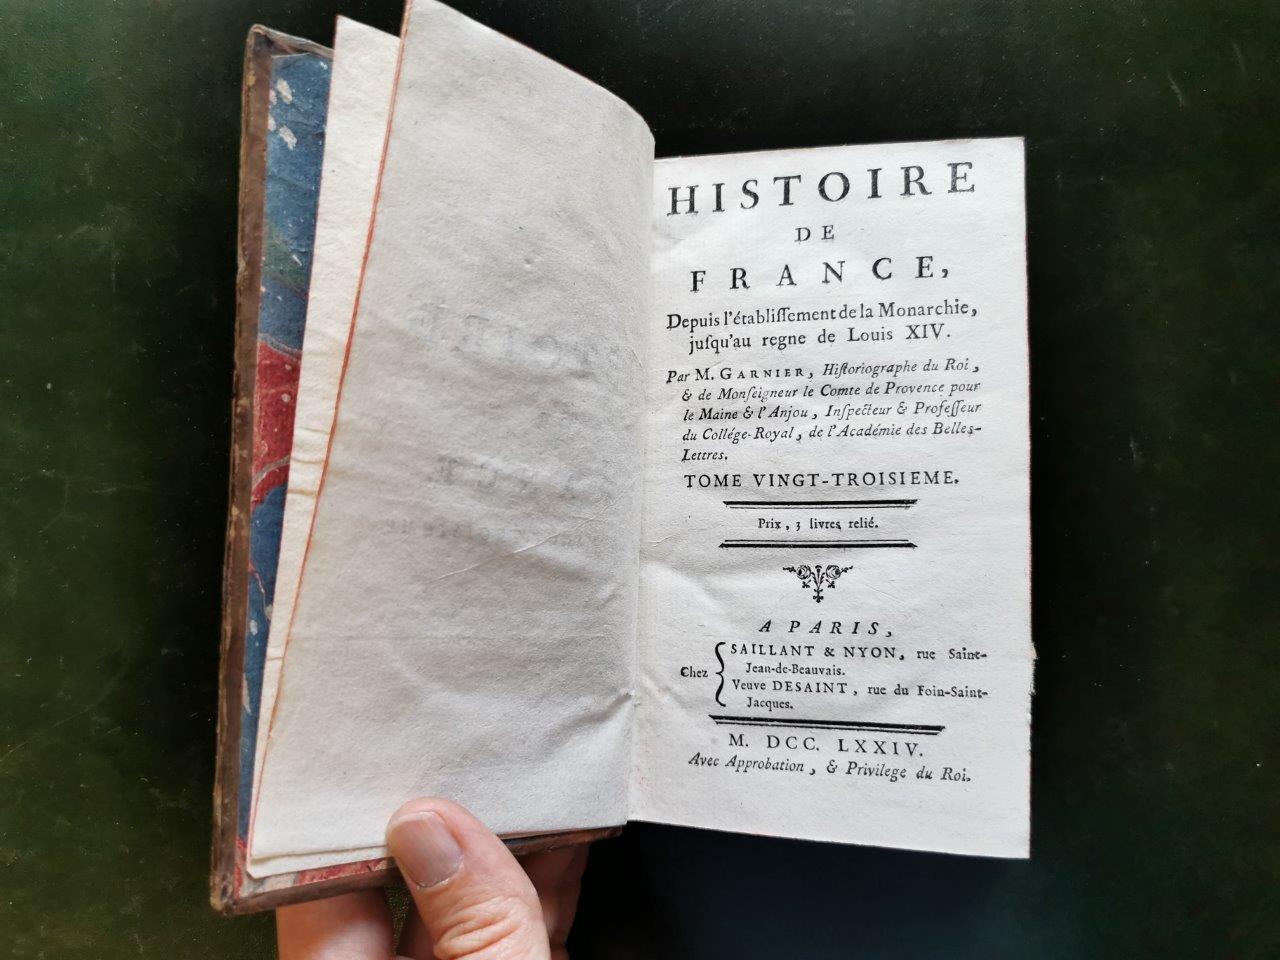 HISTOIRE
DE
FRANCE,
Depuis l'établiſſement de la Monarchie,
juſqu'au regne de Louis XIV.
Par M. GARNIER, Hiſtoriographe du Roi,
& de Monſeigneur le Comte de Provence pour
le Maine & l'Anjou, Inſpecteur & Profeſſeur
du Collége-Royal, de l'Académie des Belles-
Lettres.
TOME VINGT-TROISIEME.
Prix, 3 livres relié.
A PARIS,
Chez
SAILLANT & NYON, rue Saint-
Jean-de-Beauvais.
Veuve DESAINT, rue du Foin-Saint-
Jacques.
M. DCC. LXXIV.
Avec Approbation, & Privilege du Roi.